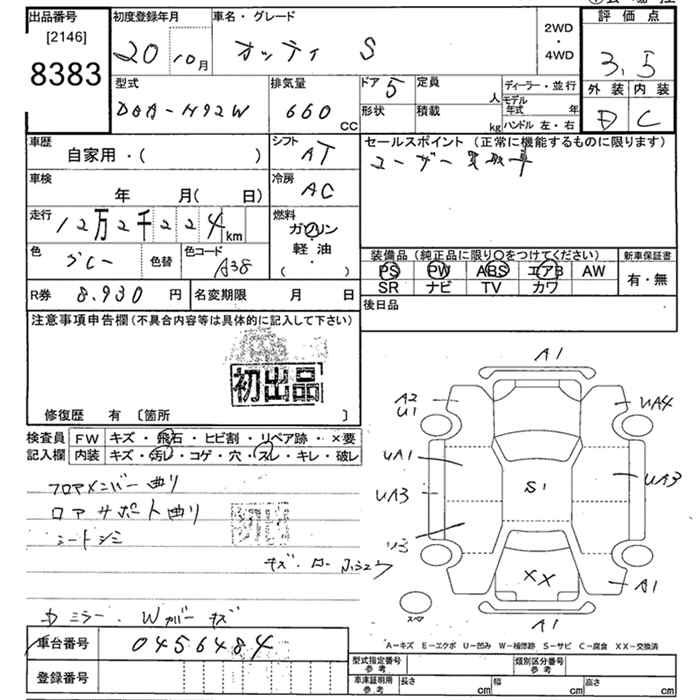 出品番号
[2146]
8383
初度登録年月
20 10月
車名・グレード
オッティ S
2WD
・
4WD
評価点
3.5
外装 内装
D C
型式
DBA-H92W
排気量
660 CC
ドア 5
形状
定員 人
積載 kg
ディーラー・並行
モデル年式 年
ハンドル 左・右
車歴
自家用・( )
シフト
AT
車検
年 月( 日)
冷房
AC
走行
12万2千224km
燃料
ガソリン
軽油
( ・ )
色
グレー
色替
色コード
A38
R券 8.930 円
名変期限 月 日
セールスポイント (正常に機能するものに限ります)
ユーザー買取車
装備品 (純正品に限り○をつけてください)
PS PW ABS エアB AW
SR ナビ TV カワ
新車保証書
有・無
後日品
注意事項申告欄 (不具合内容等は具体的に記入して下さい)
初出品
修復歴 有 〔箇所 〕
検査員記入欄
FW キズ・飛石・ヒビ割・リペア跡・×要
内装 キズ・汚レ・コゲ・穴・スレ・キレ・破レ
フロアメンバー曲り
ロアサポート曲り
シートシミ
ミラー・Wカバーキズ
A1
A2
U1
UA4
UA1
UA3
UA3
U3
S1
XX
A1
A1
スペア
A-キズ E-エクボ U-凹み W-補修跡 S-サビ C-腐食 XX-交換済
車台番号 0456484
登録番号
型式指定番号
参考
類別区分番号
参考
車庫証明用
参考
長さ cm
幅 cm
高さ cm